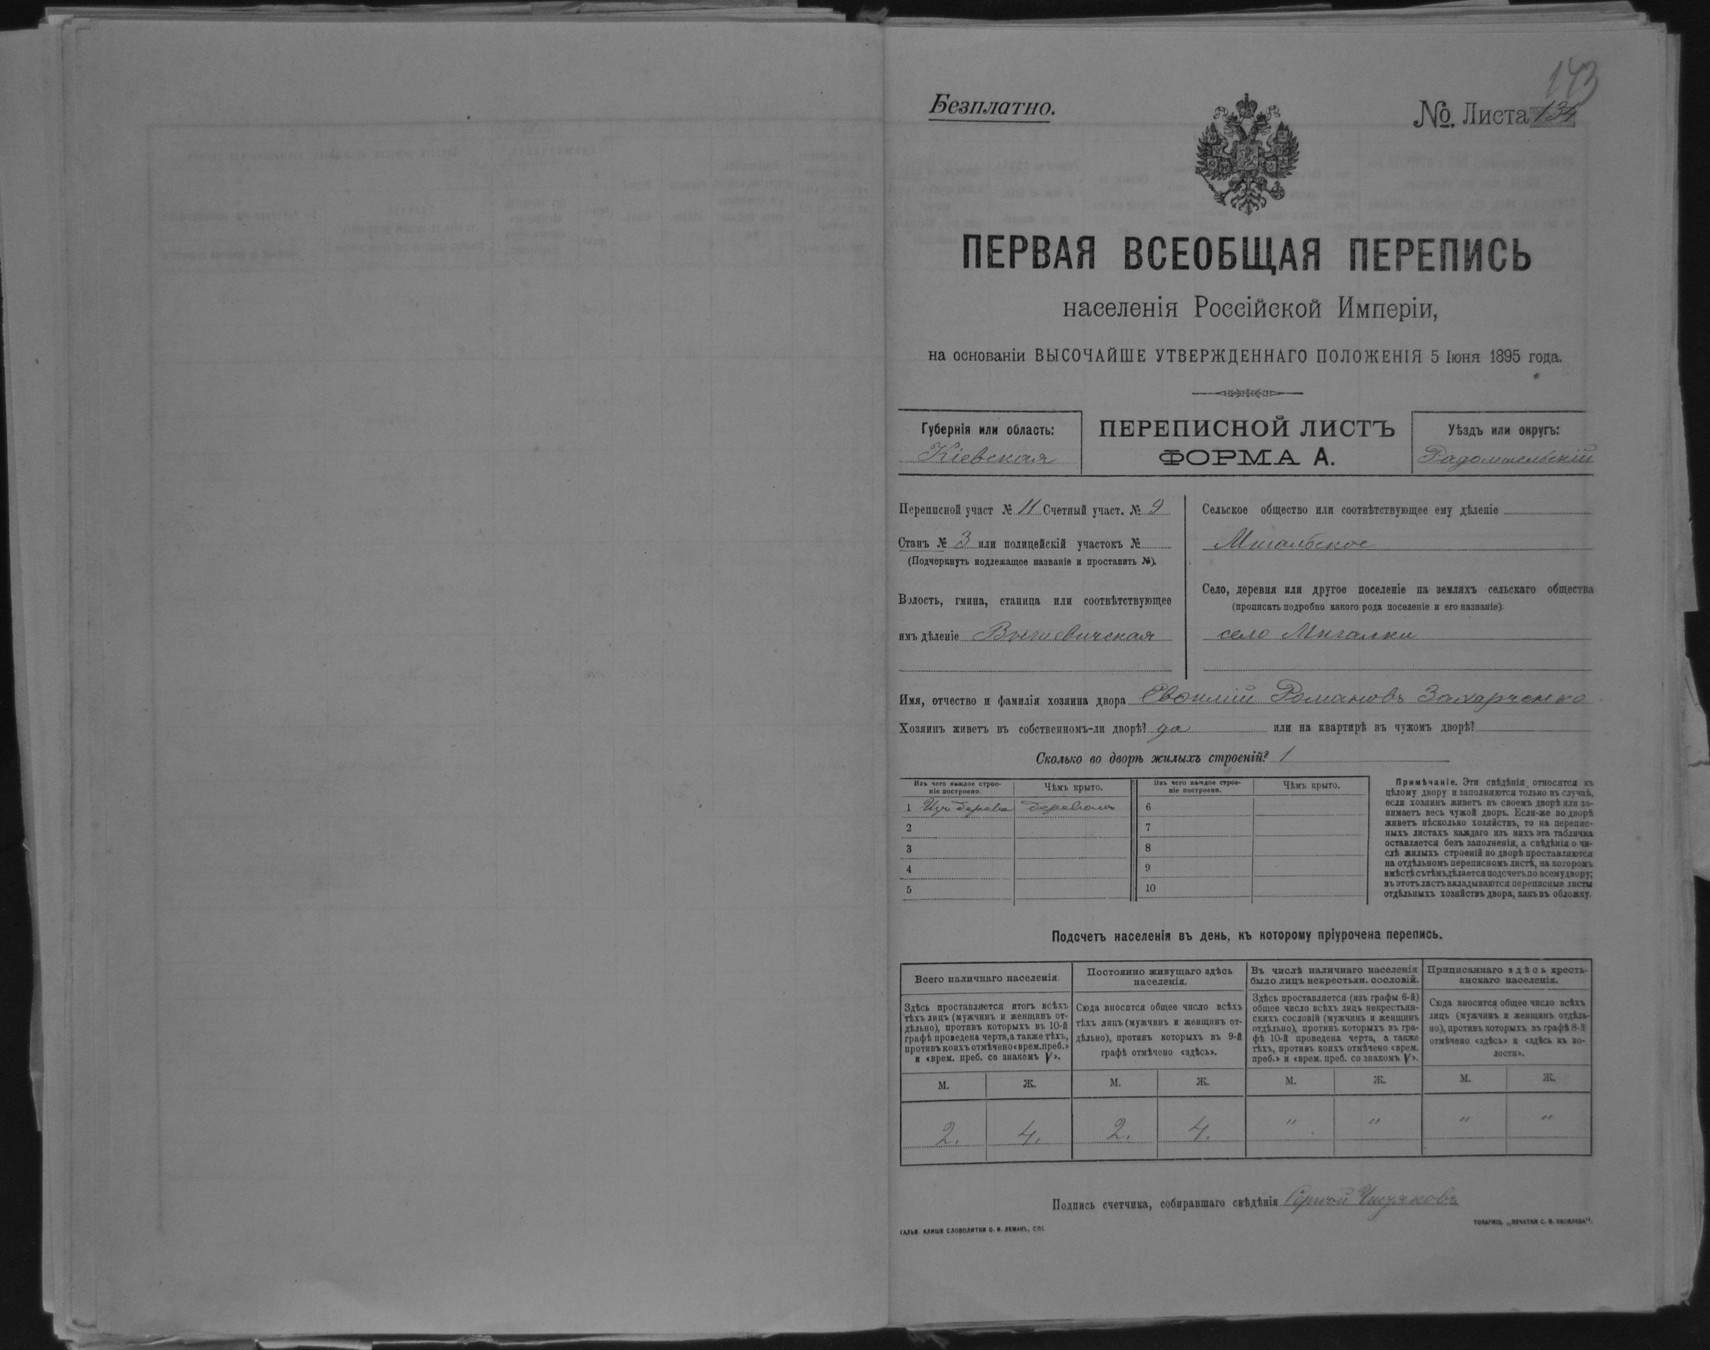 143
Безплатно.
№. Листа 134
ПЕРВАЯ ВСЕОБЩАЯ ПЕРЕПИСЬ
населенія Россійской Имперіи,
на основаніи ВЫСОЧАЙШЕ УТВЕРЖДЕННАГО ПОЛОЖЕНІЯ 5 Іюня 1895 года.
Губернія или область:
Кіевская
ПЕРЕПИСНОЙ ЛИСТЪ
ФОРМА А.
Уѣздъ или округъ:
Радомысльскій
Переписной участ № 11 Счетный участ. № 9
Станъ № 3 или полицейскій участокъ №
(Подчеркнуть подлежащее названіе и проставить №).
Волость, гмина, станица или соотвѣтствующее
имъ дѣленіе
Сельское общество или соотвѣтствующее ему дѣленіе
Мигальское
Село, деревня или другое поселеніе на земляхъ сельскаго общества
(прописать подробно какого рода поселеніе и его названіе)
село Мигалки
Имя, отчество и фамилія хозяина двора Романовъ Захарченко
Хозяинъ живетъ въ собственномъ-ли дворѣ? да или на квартирѣ въ чужомъ дворѣ?
Сколько во дворѣ жилыхъ строеній? 1
Изъ чего каждое строе-
ніе построено.
Чѣмъ крыто.
Изъ чего каждое строе-
ніе построено.
Чѣмъ крыто.
1 Изъ дерева деревомъ 6
2 7
3 8
4 9
5 10
Примѣчаніе. Эти свѣдѣнія относятся къ
цѣлому двору и заполняются только въ случаѣ,
если хозяинъ живетъ въ своемъ дворѣ или за-
нимаетъ весь чужой дворъ. Если-же во дворѣ
живетъ нѣсколько хозяйствъ, то на перепис-
ныхъ листахъ каждаго изъ нихъ эта табличка
оставляется безъ заполненія, а свѣдѣнія о чи-
слѣ жилыхъ строеній во дворѣ проставляются
на отдѣльномъ переписномъ листѣ, на которомъ
вмѣстѣ съ тѣмъ дѣлается подсчетъ по всему двору;
въ этотъ листъ вкладываются переписные листы
отдѣльныхъ хозяйствъ двора, какъ въ обложку.
Подсчетъ населенія въ день, къ которому пріурочена перепись.
Всего наличнаго населенія.
Здѣсь проставляется итогъ всѣхъ
тѣхъ лицъ (мужчинъ и женщинъ от-
дѣльно), противъ которыхъ въ 10-й
графѣ проведена черта, а также тѣхъ,
противъ коихъ отмѣчено «врем. преб.»
и «врем. преб. со знакомъ V».
Постоянно живущаго здѣсь
населенія.
Сюда вносится общее число всѣхъ
тѣхъ лицъ (мужчинъ и женщинъ от-
дѣльно), противъ которыхъ въ 9-й
графѣ отмѣчено «здѣсь».
Въ числѣ наличнаго населенія
было лицъ некрестьян. сословій.
Здѣсь проставляется (изъ графы 6-й)
общее число всѣхъ лицъ некрестьян-
скихъ сословій (мужчинъ и женщинъ
отдѣльно), противъ которыхъ въ гра-
фѣ 10-й проведена черта, а также
тѣхъ, противъ коихъ отмѣчено «врем.
преб.» и «врем. преб. со знакомъ V».
Приписаннаго здѣсь кресть-
янскаго населенія.
Сюда вносится общее число всѣхъ
лицъ (мужчинъ и женщинъ отдѣль-
но), противъ которыхъ въ графѣ 8-й
отмѣчено «здѣсь» и «здѣсь къ во-
лости».
М. Ж. М. Ж. М. Ж. М. Ж.
2. 4. 2. 4. " " " "
Подпись счетчика, собиравшаго свѣдѣнія
ГАЛЬВ. КЛИШЕ СЛОВОЛИТНИ О. И. ЛЕМАНЪ, СПБ.
ТОВАРИЩ. „ПЕЧАТНИ С. П. ЯКОВЛЕВА".